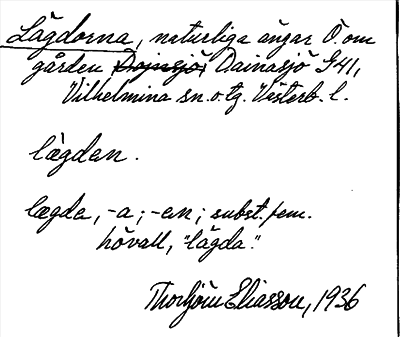 Lägdorna, naturliga ängar Ö. om
gården Dajnasjö Dainasjö G41,
Vilhelmina sn. o. tg. Västerb. l.
lägden.
lægda, -a; -en; subst. fem.
hövall, "lägda."
Thorbjörn Eliasson, 1936